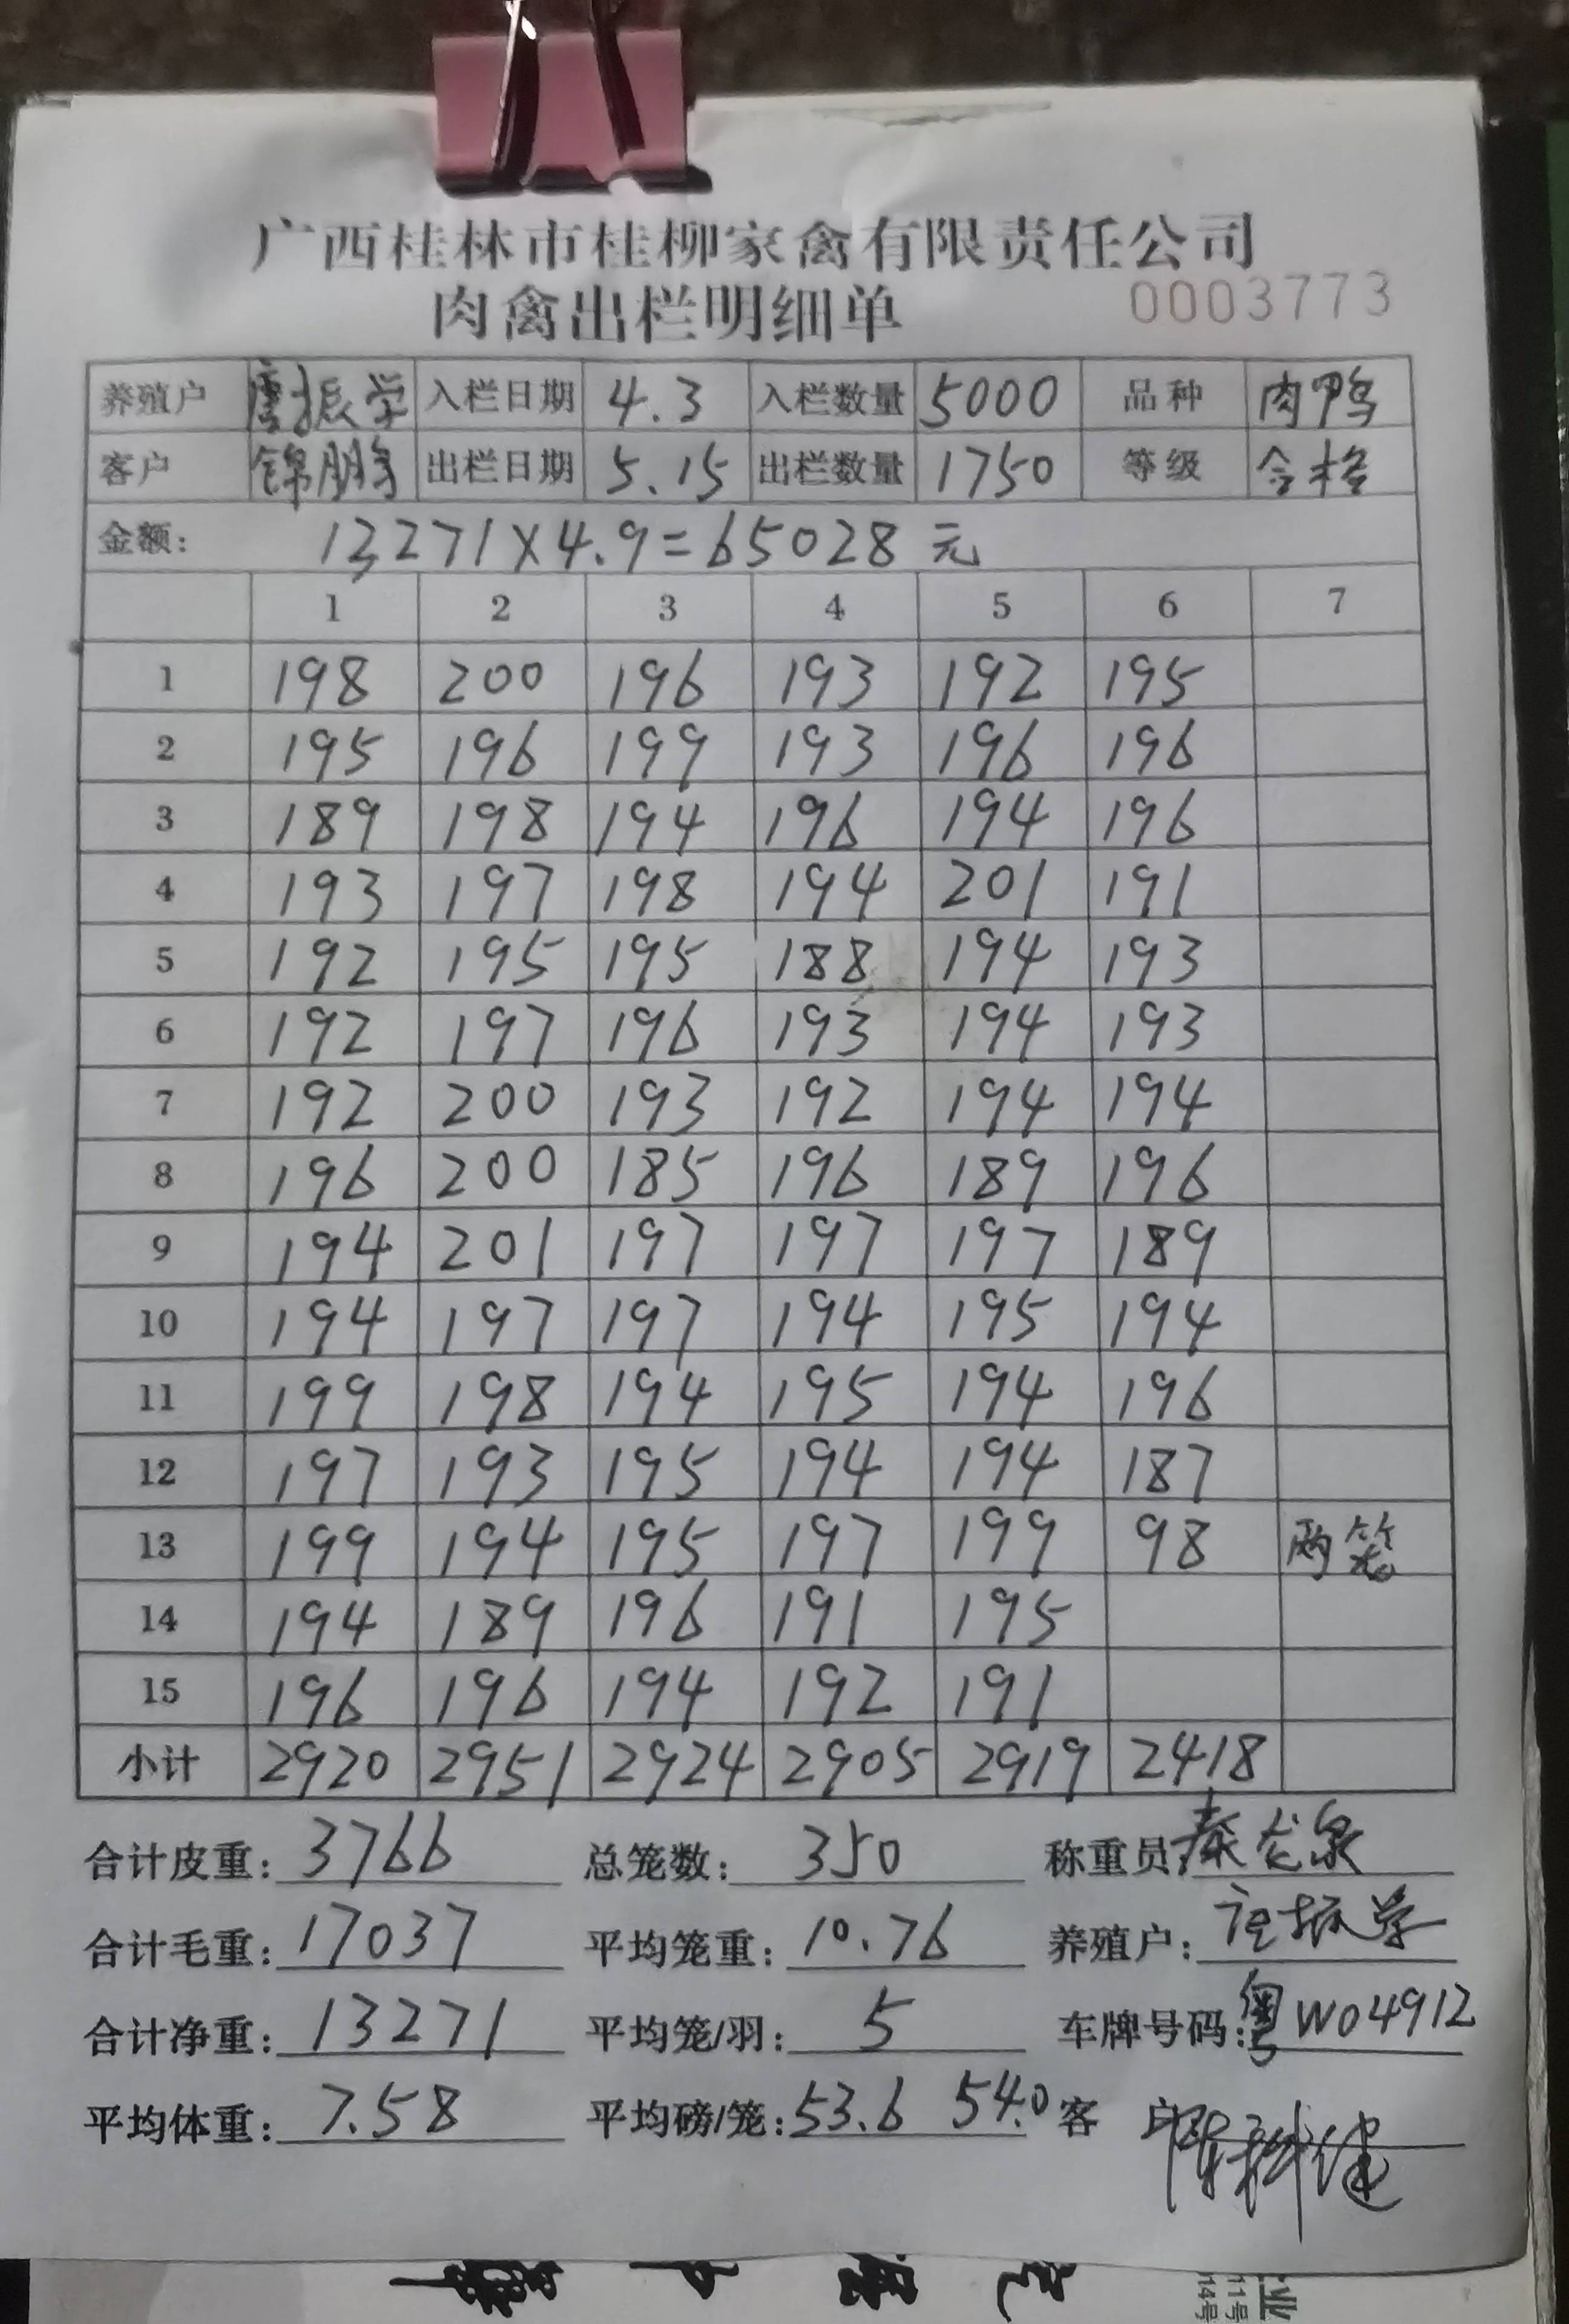 广西桂林市桂柳家禽有限责任公司
肉禽出栏明细单 0003773
养殖户 唐振学 入栏日期 4.3 入栏数量 5000 品种 肉鸭
客户 锦鹏 出栏日期 5.15 出栏数量 1750 等级 合格
金额: 13271×4.9=65028元
1 2 3 4 5 6 7
1 198 200 196 193 192 195
2 195 196 199 193 196 196
3 189 198 194 196 194 196
4 193 197 198 194 201 191
5 192 195 195 188 194 193
6 192 197 196 193 194 193
7 192 200 193 192 194 194
8 196 200 185 196 189 196
9 194 201 197 197 197 189
10 194 197 197 194 195 194
11 199 198 194 195 194 196
12 197 193 195 194 194 187
13 199 194 195 197 199 98 两笼
14 194 189 196 191 195
15 196 196 194 192 191
小计 2920 2951 2924 2905 2919 2418
合计皮重: 3766 总笼数: 350 称重员 秦龙泉
合计毛重: 17037 平均笼重: 10.76 养殖户: 唐振学
合计净重: 13271 平均笼/羽: 5 车牌号码: 粤W04912
平均体重: 7.58 平均磅/笼: 53.6 54.0 客户
业
11号
14号